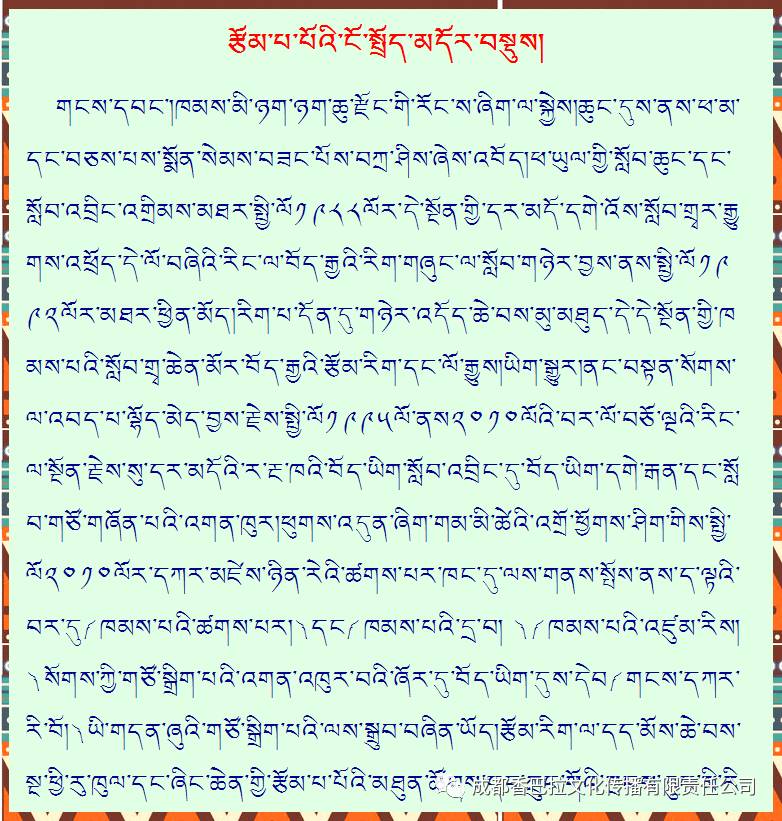 རྩོམ་པ་པོའི་ངོ་སྤྲོད་མདོར་བསྡུས།
གངས་དབང་།ཁམས་མི་ཉག་ཉག་ཆུ་རྫོང་གི་རོང་ས་ཞིག་ལ་སྐྱེས།ཆུང་དུས་ནས་ཕ་མ་
དང་བཅས་པས་སྨོན་སེམས་བཟང་པོས་བཀྲ་ཤིས་ཞེས་འབོད།ཕ་ཡུལ་གྱི་སློབ་ཆུང་དང་
སློབ་འབྲིང་འགྲིམས་མཐར་སྤྱི་ལོ༡༩༨༨ལོར་དེ་སྔོན་གྱི་དར་མདོ་དགེ་འོས་སློབ་གྲྭར་རྒྱུ
གས་འཕྲོད་དེ་ལོ་བཞིའི་རིང་ལ་བོད་རྒྱའི་རིག་གཞུང་ལ་སློབ་གཉེར་བྱས་ནས་སྤྱི་ལོ༡༩
༩༢ལོར་མཐར་ཕྱིན་མོད།རིག་པ་དོན་དུ་གཉེར་འདོད་ཆེ་བས་མུ་མཐུད་དེ་དེ་སྔོན་གྱི་ཁ
མས་པའི་སློབ་གྲྭ་ཆེན་མོར་བོད་རྒྱའི་རྩོམ་རིག་དང་ལོ་རྒྱུས།ཡིག་སྒྱུར།ནང་བསྟན་སོགས་
ལ་འབད་པ་ལྷོད་མེད་བྱས་རྗེས་སྤྱི་ལོ༡༩༩༥ལོ་ནས༢༠༡༠ལོའི་བར་ལོ་བཅོ་ལྔའི་རིང་
ལ་སྔོན་རྗེས་སུ་དར་མདོའི་ར་རྔ་ཁའི་བོད་ཡིག་སློབ་འབྲིང་དུ་བོད་ཡིག་དགེ་རྒན་དང་སློ
བ་གཙོ་གཞོན་པའི་འགན་ཁུར།ཕུགས་འདུན་ཞིག་གམ་མི་ཚེའི་འགྲོ་ཕྱོགས་ཤིག་གིས་སྤྱི་
ལོ༢༠༡༠ལོར་དཀར་མཛེས་ཉིན་རེའི་ཚགས་པར་ཁང་དུ་ལས་གནས་སྤོས་ནས་ད་ལྟའི་
བར་དུ༼ཁམས་པའི་ཚགས་པར།༽དང༼ཁམས་པའི་དྲ་བ།༽༼ཁམས་པའི་འཛུམ་རིས།
༽སོགས་ཀྱི་གཙོ་སྒྲིག་པའི་འགན་འཁུར་བའི་ཞོར་དུ་བོད་ཡིག་དུས་དེབ༼གངས་དཀར་
རི་བོ།༽ཡི་གདན་ཞུའི་གཙོ་སྒྲིག་པའི་ལས་སྒྲུབ་བཞིན་ཡོད།རྩོམ་རིག་ལ་དད་མོས་ཆེ་བས་
སྔ་ཕྱི་རུ་ཁུལ་དང་ཞིང་ཆེན་གྱི་རྩོམ་པ་པོའི་མཐུན་
成都香巴拉文化传播有限责任公司